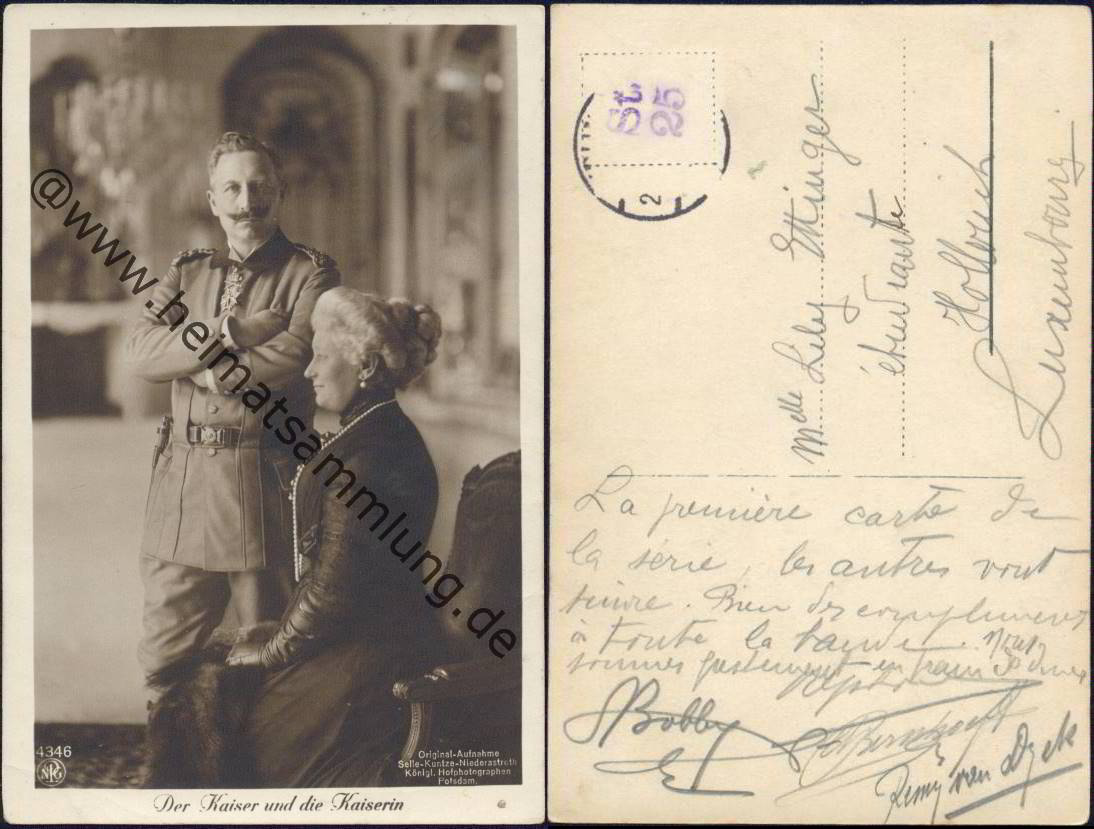 @www.heimatsammlung.de
4346
NPG
Original-Aufnahme
Selle-Kuntze-Niederastroth
Königl. Hofphotographen
Potsdam.
Der Kaiser und die Kaiserin
St.
25
2
Melle Lily Ettinger
étudiante
Hollerich
Luxembourg
La première carte de
la série, les autres vont
suivre. Bien des compliments
à toute la bande. Nous
sommes justement en train
Bobby
Remy van Dyck